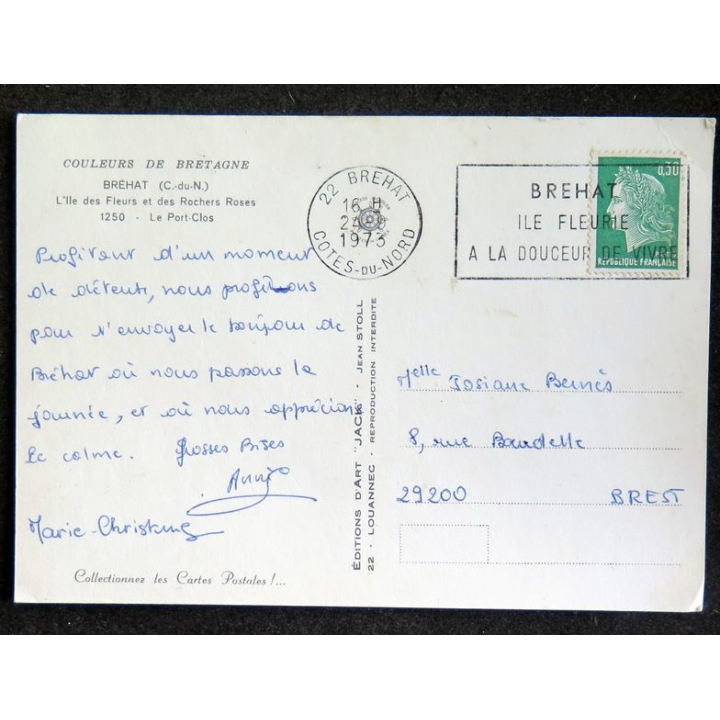 COULEURS DE BRETAGNE
BRÉHAT (C.-du-N.)
L'Ile des Fleurs et des Rochers Roses
1250 - Le Port-Clos
Profitant d'un moment
de détente, nous profitons
pour t'envoyer le bonjour de
Bréhat où nous passons la
journée, et où nous apprécions
le calme. Grosses Bises
Annie
Marie-Christine
Collectionnez les Cartes Postales !...
ÉDITIONS D'ART "JACK" · JEAN STOLL
22 · LOUANNEC · REPRODUCTION INTERDITE
22 BREHAT
16 H
1973
COTES-DU-NORD
BREHAT
ILE FLEURIE
A LA DOUCEUR DE VIVRE
0,30
REPUBLIQUE FRANÇAISE
Melle Josiane Bernès
8, rue Bourdelle
29200 BREST